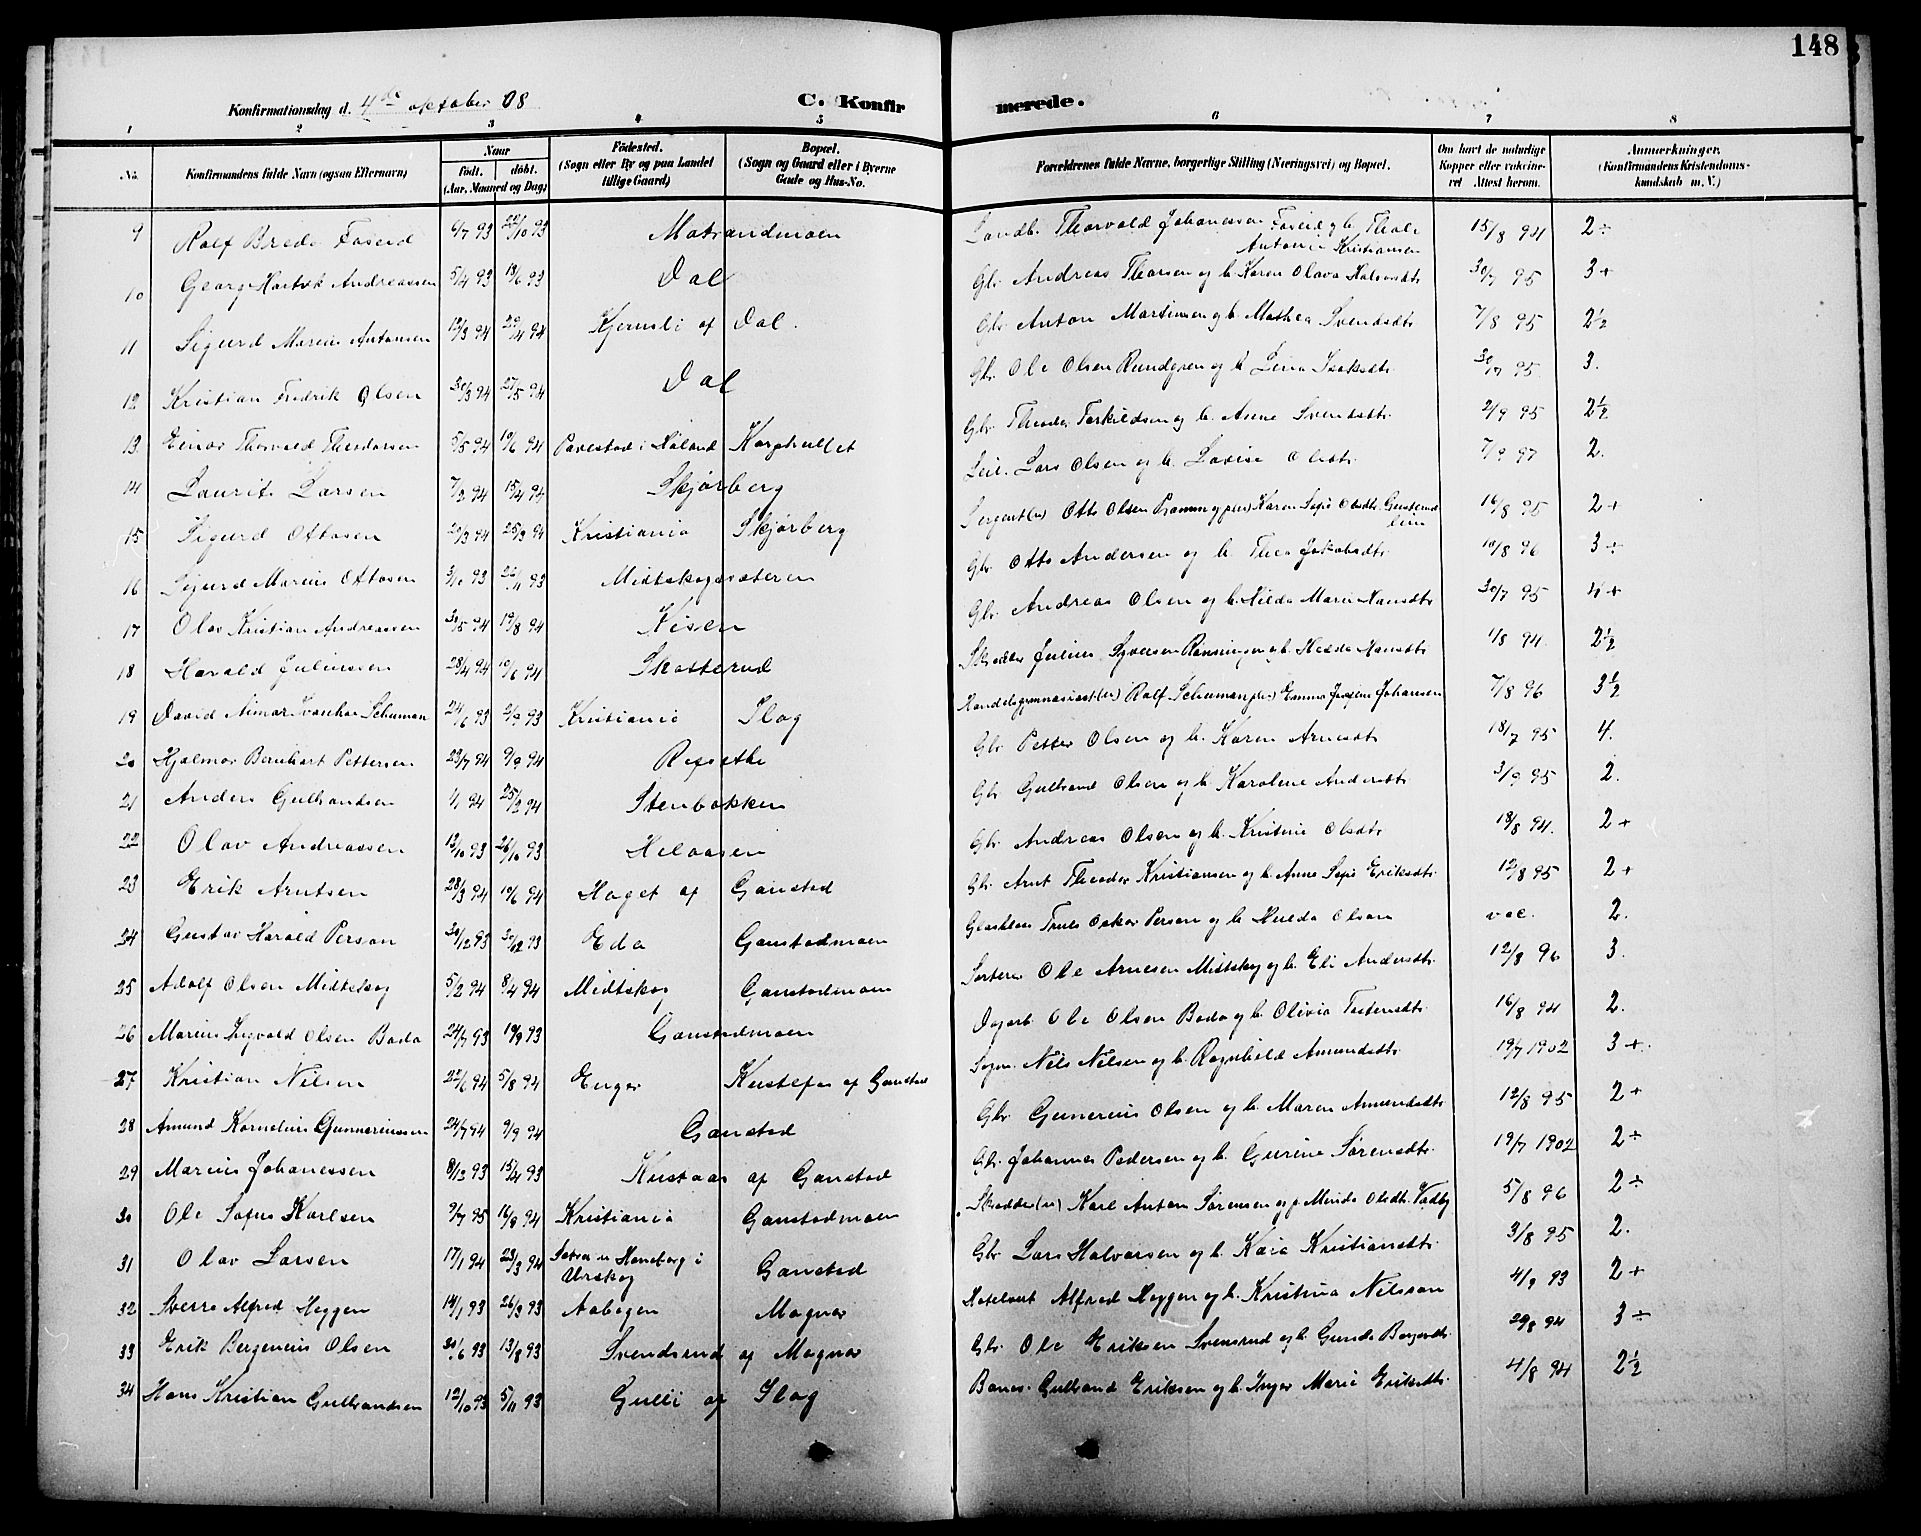 148
Konfirmationsdag d. 4de oktober 08
C. Konfirmerede.
1 2 3 4 5 6 7 8
No.
Konfirmandens fulde Navn (ogsaa Efternavn)
Naar
født. døbt.
(Aar, Maaned og Dag)
Fødested.
(Sogn eller By og paa Landet
tillige Gaard)
Bopæl.
(Sogn og Gaard eller i Byerne
Gade og Hus-No.
Forældrenes fulde Navne, borgerlige Stilling (Næringsvei) og Bopæl.
Om havt de naturlige
Kopper eller vakcine-
ret Attest herom.
Anmærkninger.
(Konfirmandens Kristendoms-
kundskab m. V.)
9 Rolf Brede Foseid 6/7 93 22/10 93 Matrandmoen Landh. Thorvald Johanessen Foseid g h. Thale Antonie Kristiansen 15/8 94 2÷
10 Georg Hartvik Andreassen 5/4 93 18/6 93 Dal Gbr. Andreas Thorsen og h. Karen Olava Halvorsdtr 30/7 95 3+
11 Sigurd Marius Antonsen 12/3 94 29/4 94 Kjernsli af Dal. Gbr Anton Martinsen og h. Mathea Svendsdtr 7/8 95 2½
12 Kristian Fredrik Olsen 30/3 94 27/5 94 Dal Gbr. Ole Olsen Rundgren og h. Lina Isaksdtr 30/7 95. 3.
13 Einar Thorvald Theodorsen 5/5 94 10/6 94 i Høland Korphullet Gbr. Theodor Torkildsen og h. Anne Svendsdtr 2/9 95 2½
14 Laurits Larsen 7/2 94 15/4 94 Skjørberg Leil. Lars Olsen og h. Lovise Olsdtr. 7/9 97 2.
15 Sigurd Ottosen 20/3 94 25/3 94 Kristiania Skjørberg Sergent (u) Otto Olsen og p(u) Karen Sofie Olsdtr. 16/8 95 2+
16 Sigurd Marius Ottosen 3/10 93 26/11 93 Midtskogsæteren Gbr. Otto Andersen og h. Thea Jakobsdtr. 10/8 96 3÷
17 Olav Kristian Andreassen 30/5 94 19/8 94 Kisen Gbr. Andreas Olsen og h. Hilda Marie Hansdtr 30/7 95 4+
18 Harald Juliussen 28/4 94 10/6 94 Skotterud Skrædder Julius Syversen Rønningen og h. Hilda Hansdtr 1/8 94. 2½
19 David Aimar Ivanhoe Schuman 24/6 93 2/9 93 Kristiania Slog Handelsgymnasiast (u) Rolf Schuman p(u) Emma Josefine Johansen 7/8 96 3½
20 Hjalmar Bernhart Pettersen 23/7 94 9/9 94 Gbr. Petter Olsen og h. Karen Arnesdtr 18/7 95 4.
21 Anders Gulbrandsen 4/1 94 25/2 94 Stenbakken Gbr Gulbrand Olsen og h. Karoline Andersdtr 3/9 95 2.
22 Olav Andreassen 12/10 93 26/10 93 Helaasen Gbr. Andreas Olsen og h. Kristine Olsdtr 18/8 94. 2+
23 Erik Arntsen 28/3 94 10/6 94 Haget af Gaustad Gbr. Arnt Theodor Kristiansen og h. Anne Sofie Eriksdtr. 12/8 95 2+
24 Gustav Harald Person 30/12 93 30/12 93 Eda Gaustadmoen Truls Oskar Person og h. Hulda Olsen vac. 2.
25 Adolf Olsen Midtskog 5/2 94 8/4 94 Midtskog Gaustadmoen Sorterer Ole Arnesen Midtskog og h. Eli Andersdtr. 12/8 96 3.
26 Marius Sigvald Olsen Bada 24/7 93 10/9 93 Gaustadmoen Dagarb. Ole Olsen Bada og h. Olivia Tostensdtr. 16/8 94 2.
27 Kristian Nilsen 22/6 94 5/8 94 Enger Kustefos af Gaustad Nils Nilsen og h. Ragnhild Amundsdtr 19/7 1902 3+
28 Amund Kornelius Gunnariussen 24/7 94 9/9 94 Gaustad Gbr. Gunerius Olsen og h. Maren Amundsdtr 12/8 95 2+
29 Marius Johanessen 8/12 93 15/4 93 Kustaas af Gaustad Gbr. Johannes Pedersen og h. Gurine Sørensdtr. 19/7 1902 2÷
30 Ole Sofus Karlsen 9/7 95 16/8 94 Kristiania Gaustadmoen Skrædder (u) Karl Anton Sørensen og p. Olsdtr. 5/8 96 2÷
31 Olav Larsen 17/1 94 23/3 94 u Haneborg i Urskog Gaustad Gbr Lars Halvorsen og h. Kaia Kristiansdtr. 3/8 95 2.
32 Sverre Alfred Heggen 14/1 93 26/3 93 Aabogen Magnor Hotelvært Alfred Heggen og h. Kristina Nilsson 4/9 93 2+
33 Erik Bergenius Olsen 30/6 93 13/8 93 Svendsrud af Magnor Gbr. Ole Eriksen Svensrud og h. Gunda Bergersdtr. 29/8 94 3÷
34 Hans Kristian Gulbrandsen 12/10 93 5/11 93 Gulli af Slog Banev. Gulbrand Eriksen og h. Inger Marie Eriksdtr 4/8 94 2½